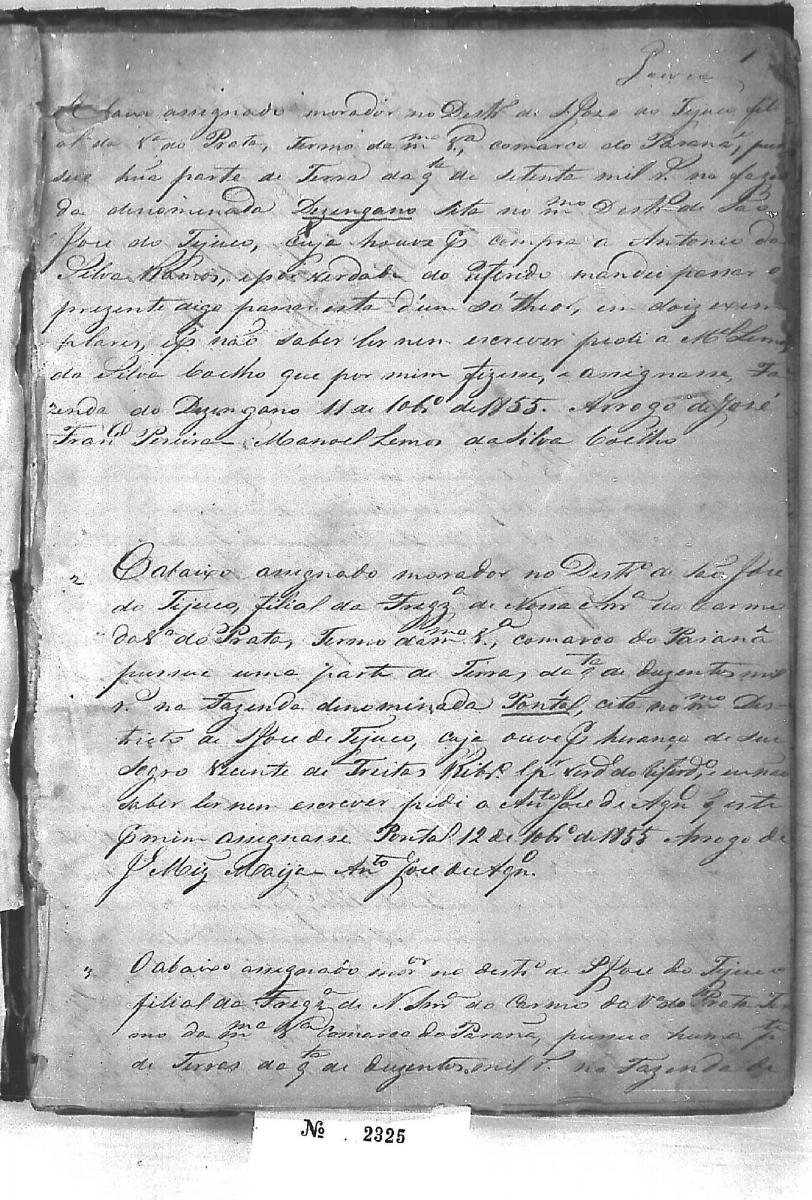 1
O abaixo assignado morador no Destr.º de S. Joze do Tejuco, filial
da V.ª do Prata, Termo da m.ma V.ª, comarca do Paraná, pussue
huã parte de Terra da q.ta de setenta mil r.s na fazen
da denominada Dezengano sita no m.mo Destr.º de São
Joze do Tejuco, cuja houve p compra a Antonio da
Silva Ramos, e por verdade do referido mandei passar o
prezente digo passar esta d'um só theor, em doiz exem
plares, e p não saber ler nem escrever pedi a M.el Lemos
da Silva Coelho que por mim fizesse, e assignasse, Fa
zenda do Dezengano 11 de 10br.º de 1855. Arrogo de José
Fran.co Pereira Manoel Lemos da Silva Coelho
2 O abaixo assignado morador no Destr.º de São Jose
do Tijuco, filial da Fregz.ª de Nossa Snr.ª do Carmo
da V.ª do Prata, Termo da m.ma V.ª, comarca do Paraná
pussue uma parte de Terras, da q.ta de duzentos mil
r.s na Fazenda denominada Pontal, cita no m.mo Des-
tricto de S. Jose de Tejuco, cuja ouve p herança de seu
sogro Vicente de Freitas Ribr.º e p.r verd.e do referd.º, e eu não
saber ler nem escrever pidi a Ant.º Jose de Aga.r q esta
p mim assignasse Pontal 12 de 10br.º de 1855 Arrogo de
J.e Miz Ant.º Jose de Ag.r
3 O abaixo assignado mor.or no destr.º de S. Jose do Tijuco
filial da Fregz.ª de N. Snr.ª do Carmo da V.ª do Prata Ter
mo da m.ma V.ª Comarca do Paraná, pussue huma p.te
de Terras da q.ta de duzentos mil r.s na Fazenda de
Nº 2325